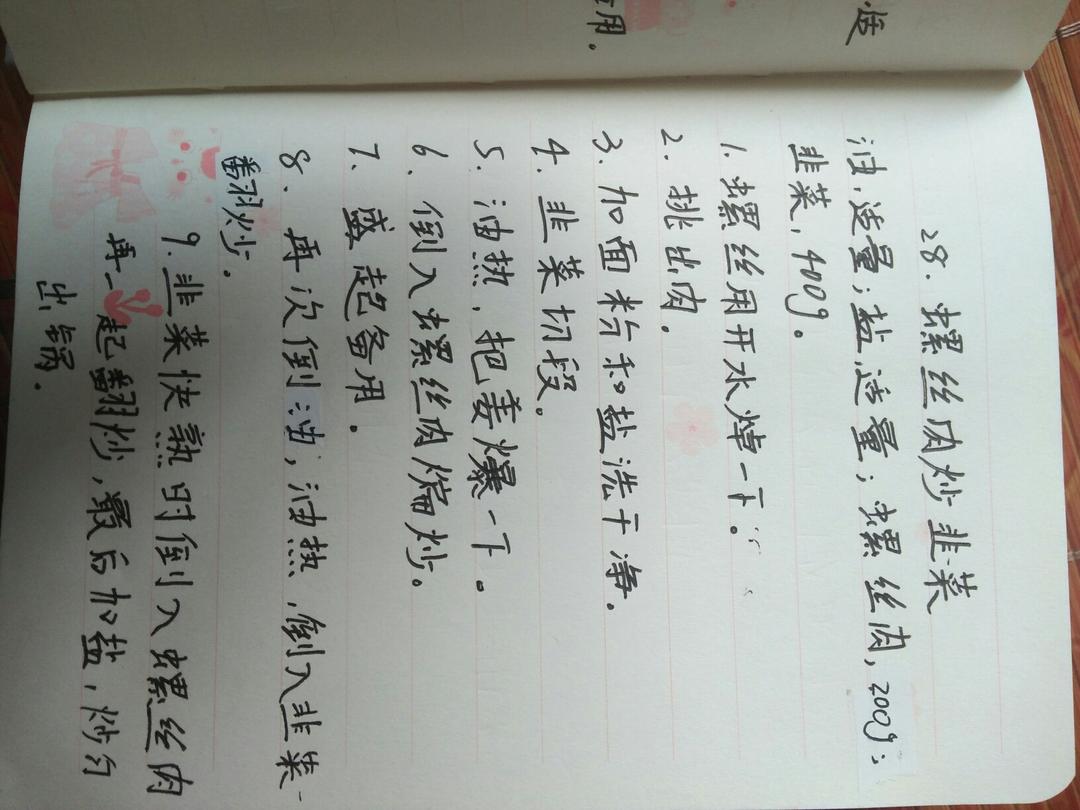 适
用。
28. 螺丝肉炒韭菜
油,适量;盐,适量;螺丝肉,200g;
韭菜,400g。
1. 螺丝用开水焯一下。
2. 挑出肉。
3. 加面粉和盐洗干净。
4. 韭菜切段。
5. 油热,把姜爆一下。
6. 倒入螺丝肉煸炒。
7. 盛起备用。
8. 再次倒油,油热,倒入韭菜
翻炒。
9. 韭菜快熟时倒入螺丝肉
再一起翻炒,最后加盐,炒匀
出锅.